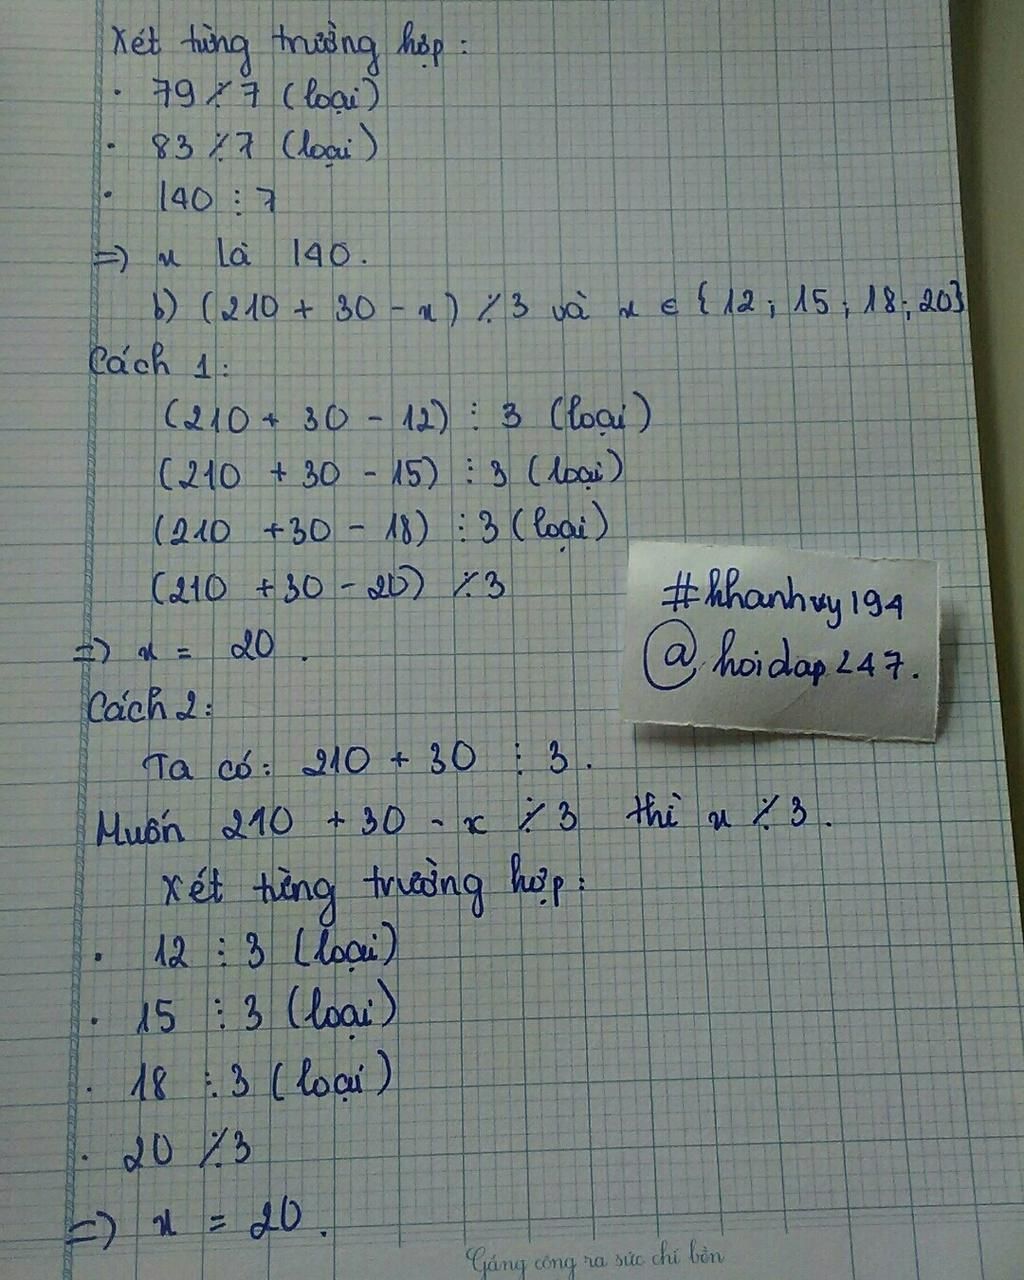 Xét từng trường hợp:
· 79 ⋮̸ 7 (loại)
· 83 ⋮̸ 7 (loại)
· 140 ⋮ 7
=> x là 140.
b) (210 + 30 - x) ⋮̸ 3 và x ∈ {12; 15; 18; 20}
Cách 1:
(210 + 30 - 12) ⋮ 3 (loại)
(210 + 30 - 15) ⋮ 3 (loại)
(210 + 30 - 18) ⋮ 3 (loại)
(210 + 30 - 20) ⋮̸ 3
=> x = 20.
#khanhvy194
@hoidap247.
Cách 2:
Ta có: 210 + 30 ⋮ 3.
Muốn 210 + 30 - x ⋮̸ 3 thì x ⋮̸ 3.
Xét từng trường hợp:
· 12 ⋮ 3 (loại)
· 15 ⋮ 3 (loại)
· 18 ⋮ 3 (loại)
· 20 ⋮̸ 3
=> x = 20.
Gắng công ra sức chí bền